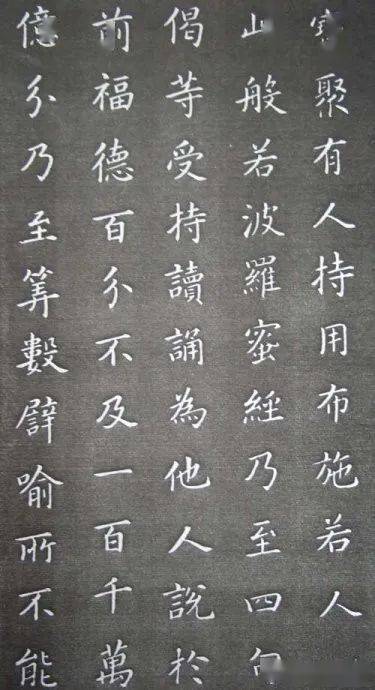 聚有人持用布施若人
般若波羅蜜經乃至四句
偈等受持讀誦為他人說於
前福德百分不及一百千萬
億分乃至筭數譬喻所不能